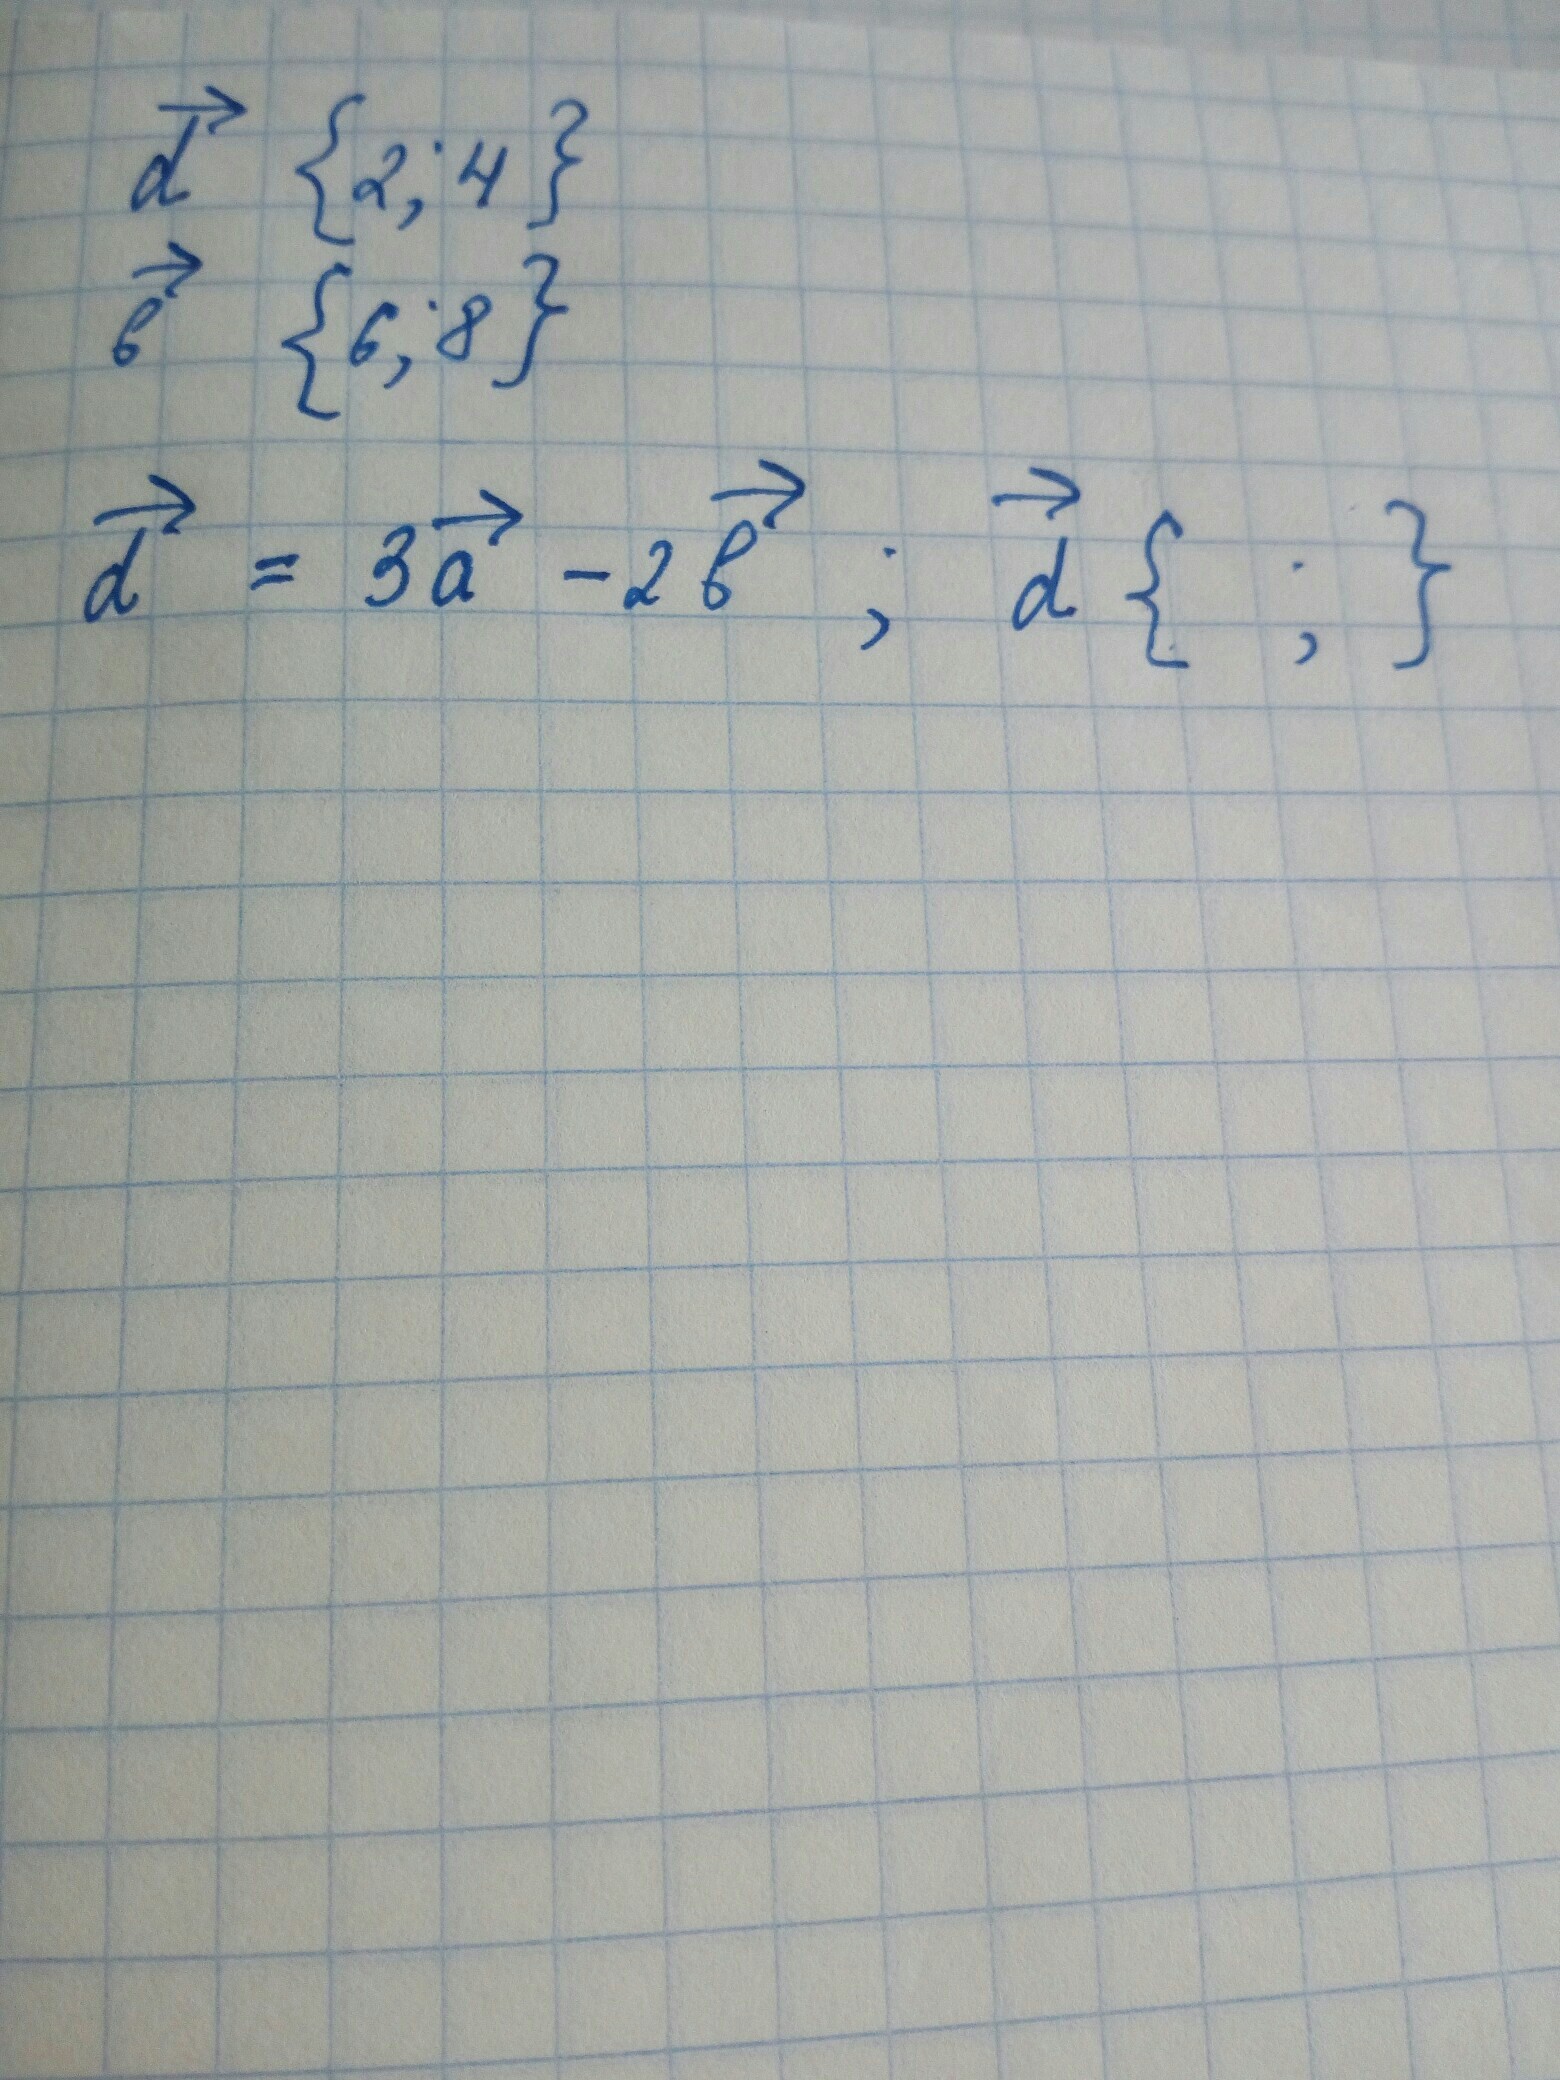 d⃗ {2; 4}
в⃗ {6; 8}
d⃗ = 3a⃗ - 2в⃗ ; d⃗ { ; }